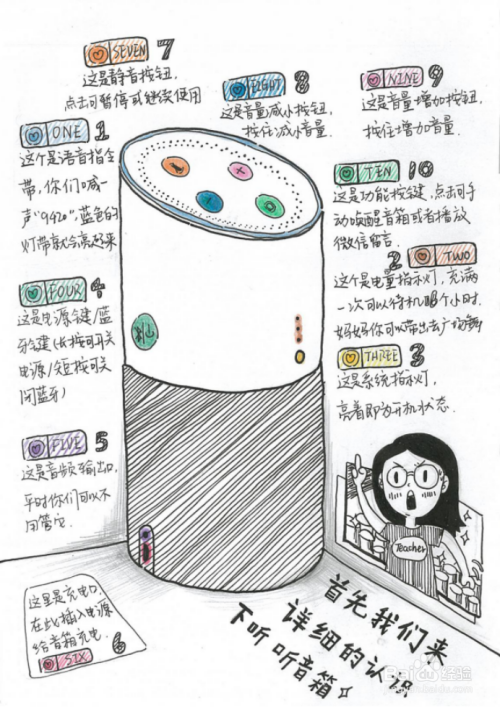 SEVEN 7
这是静音按钮,
点击可暂停或继续使用
EIGHT 8
这是音量减小按钮,
按住减小音量.
NINE 9
这是音量增加按钮,
按住增加音量.
ONE 1
这个是语音指令
带,你们喊一
声“9420”,蓝色的
灯带就会亮起来
TEN 10
这是功能按键,点击可手
动唤醒音箱或者播放
微信留言.
2 TWO
这个是电量指示灯,充满
一次可以待机8个小时.
妈妈你可以带出去广场舞
THREE 3
这是系统指示灯,
亮着即为开机状态.
FOUR 4
这是电源键/蓝
牙键(长按可开关
电源/短按可关
闭蓝牙)
FIVE 5
这是音频输出口,
平时你们可以不
用管它.
这里是充电口,
在此插入电源
给音箱充电.
SIX 6
Teacher
首先我们来
详细的认识
下听听音箱
Baidu经验
jingyan.baidu.com